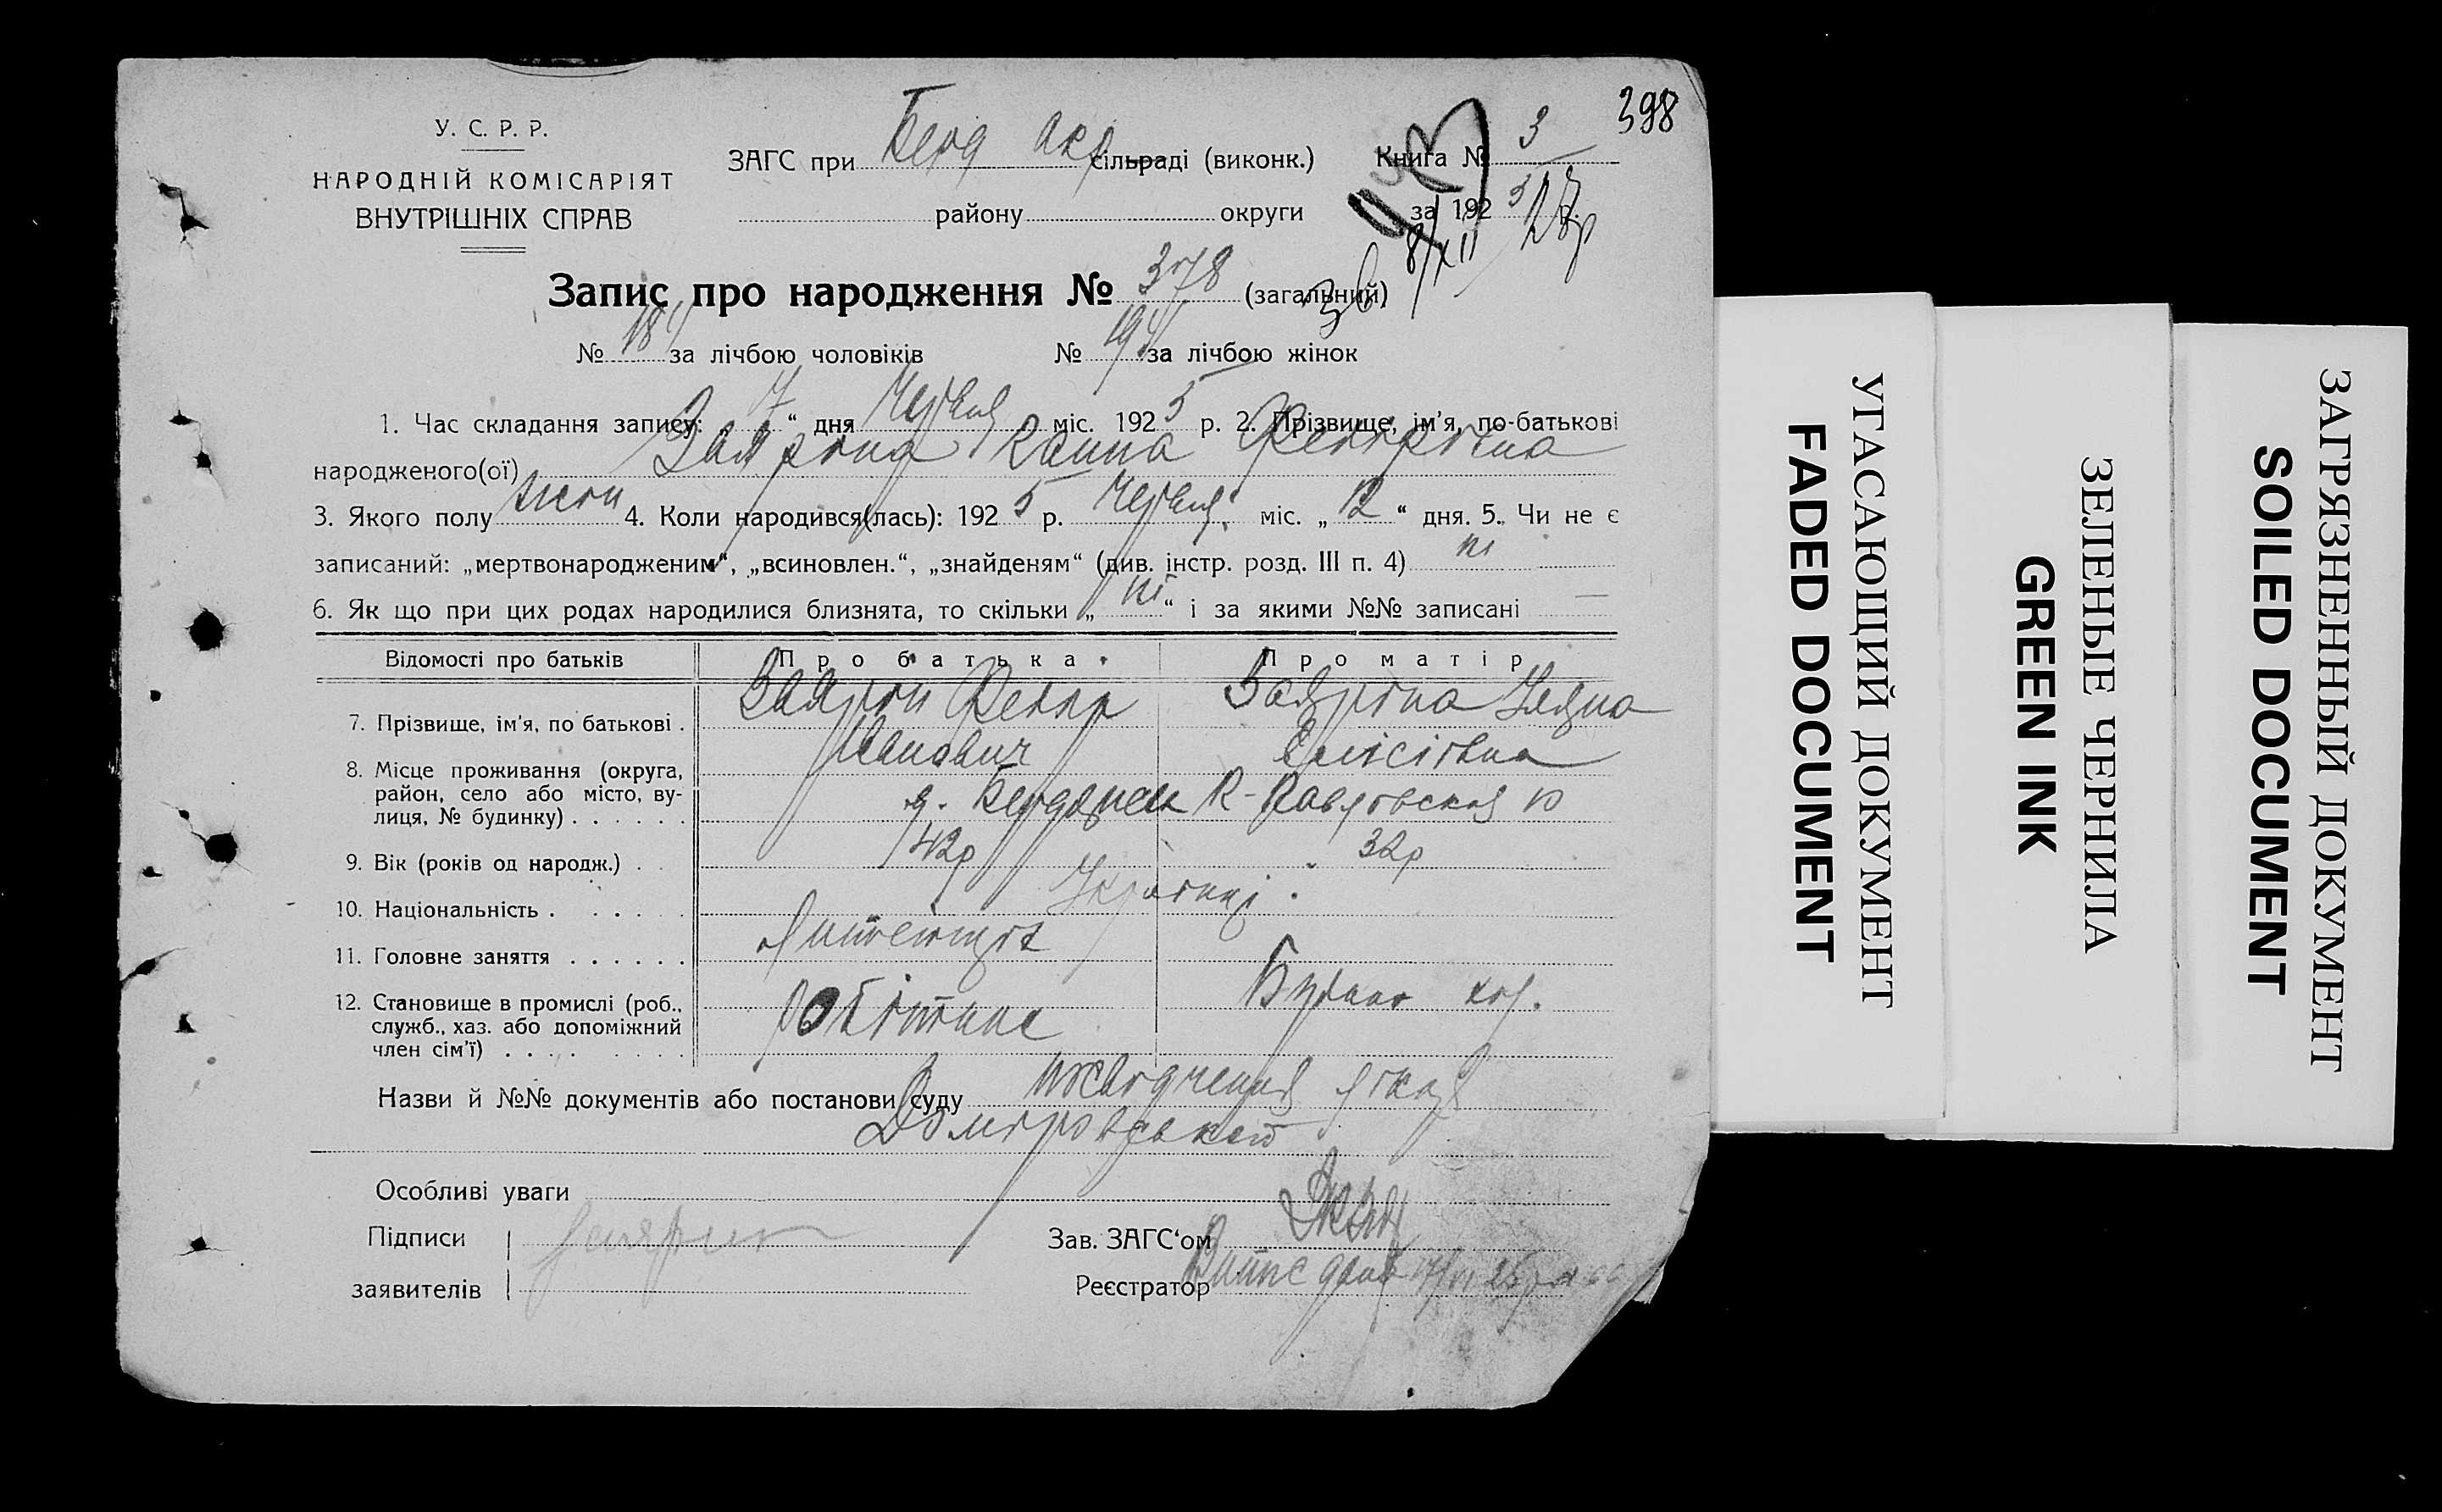 398
У. С. Р. Р.
НАРОДНІЙ КОМІСАРІЯТ
ВНУТРІШНІХ СПРАВ
ЗАГС при Берд Окр сільраді (виконк.) Книга № 3
району округи за 192 5 р.
8/XII
Запис про народження № 378 (загальний)
№ 184 за лічбою чоловіків № 194 за лічбою жінок
1. Час складання запису: 17 “ дня Червня міс. 192 5 р. 2. Прізвище, ім’я, по-батькові
народженого(ої) Ганна
3. Якого полу жін 4. Коли народився(лась): 192 5 р. Червня міс. „ 12 “ дня. 5. Чи не є
записаний: „мертвонародженим“, „всиновлен.“, „знайденям“ (див. інстр. розд. III п. 4) ні
6. Як що при цих родах народилися близнята, то скільки „ ні “ і за якими №№ записані —
Відомості про батьків Про батька. Про матір
7. Прізвище, ім’я, по батькові . Заярний Заярна Уляна
Иванович Єлисівна
8. Місце проживання (округа,
район, село або місто, ву-
лиця, № будинку) . . . . . . Бердянськ
9. Вік (років од народж.) . 42р 32р
10. Національність . . . . . Українці
11. Головне заняття . . . . . .
12. Становище в промислі (роб.,
служб., хаз. або допоміжний
член сім’ї) . . . . . . . . робітник
Назви й №№ документів або постанови суду посвідчення лікаря
Домбровської
Особливі уваги
Підписи
заявителів
Зав. ЗАГС‘ом
Реєстратор
УГАСАЮЩИЙ ДОКУМЕНТ
FADED DOCUMENT
ЗЕЛЕНЫЕ ЧЕРНИЛА
GREEN INK
ЗАГРЯЗНЕННЫЙ ДОКУМЕНТ
SOILED DOCUMENT